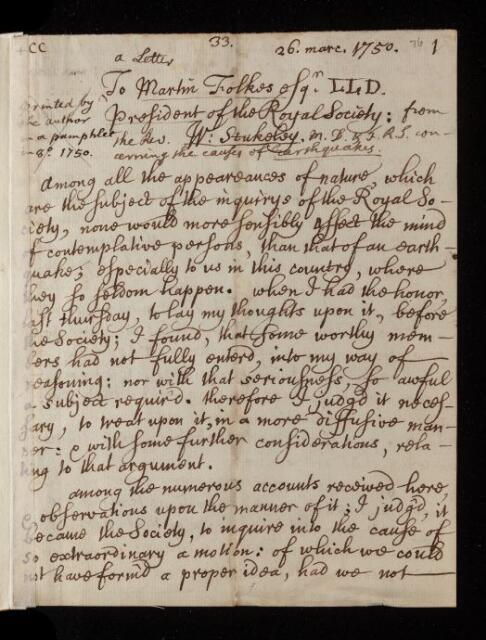 CC
33.
26. marc. 1750.
1
a Letter
To Martin Folkes esqr. LLD.
printed by
the author
in a pamphlet
in 8o. 1750.
President of the Royal Society: from
the Rev. Wm. Stukeley, M.D. F.R.S. con-
cerning the causes of earthquakes.
Among all the appeareances of nature, which
are the subject of the inquirys of the Royal So-
ciety, none would more sensibly affect the mind
of contemplative persons, than that of an earth-
quake; especially to us in this country, where
they so seldom happen. when I had the honor,
last thursday, to lay my thoughts upon it, before
the Society; I found, that some worthy mem-
bers had not fully enterd, into my way of
reasoning: nor with that seriousness, so awful
a subject requir'd. therefore I judg'd it neces-
sary, to treat upon it, in a more diffusive man-
ner: & with some further considerations, rela-
ting to that argument.
among the numerous accounts received here,
& observations upon the manner of it; I judg'd, it
became the Society, to inquire into the cause of
so extraordinary a motion: of which we could
not have form'd a proper idea, had we not